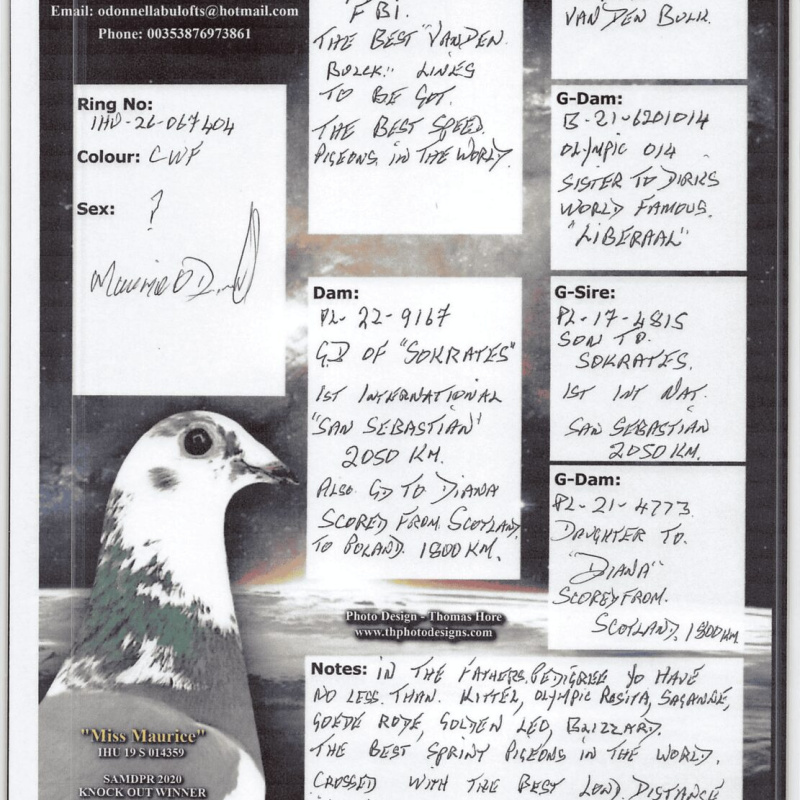 Email: odonnellabulofts@hotmail.com
Phone: 00353876973861
Ring No:
IHU-26-067404
Colour: CWF
Sex: ?
Maurice O D
FBI.
THE BEST "VANDEN
BULCK" LINES
TO BE GOT.
THE BEST SPEED
PIGEONS IN THE WORLD.
Dam:
PL-22-9167
G.D OF "SOKRATES"
1ST INTERNATIONAL
"SAN SEBASTIAN"
2050 KM.
ALSO GD TO DIANA
SCORED FROM SCOTLAND
TO POLAND. 1800 KM.
VAN DEN BULK.
G-Dam:
B-21-6201014
OLYMPIC 014
SISTER TO DIRKS
WORLD FAMOUS.
"LIBERAAL"
G-Sire:
PL-17-4815
SON TO
SOKRATES.
1ST INT NAT.
SAN SEBASTIAN
2050 KM.
G-Dam:
PL-21-4773.
DAUGHTER TO.
"DIANA"
SCORED FROM.
SCOTLAND. 1800 KM
Photo Design - Thomas Hore
www.thphotodesigns.com
Notes: IN THE FATHERS PEDIGREE YO HAVE
NO LESS THAN. KITTEL, OLYMPIC ROSITA, SAGANNE,
GOEDE RODE, GOLDEN LEO, BLIZZARD.
THE BEST SPRINT PIGEONS IN THE WORLD.
CROSSED WITH THE BEST LONG DISTANCE
"Miss Maurice"
IHU 19 S 014359
SAMDPR 2020
KNOCK OUT WINNER